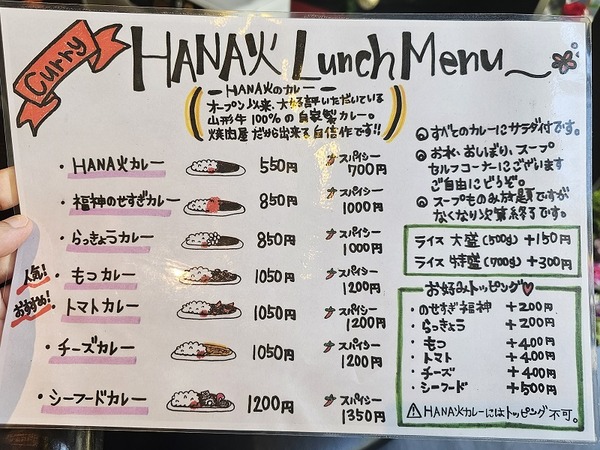 Curry
HANA火 Lunch Menu
HANA火のカレー
オープン以来、大好評いただいている
山形牛100%の自家製カレー。
焼肉屋だから出来る自信作です!!
・HANA火カレー 550円 スパイシー 700円
・福神のせすぎカレー 850円 スパイシー 1000円
・らっきょうカレー 850円 スパイシー 1000円
人気! ・もつカレー 1050円 スパイシー 1200円
おすすめ! ・トマトカレー 1050円 スパイシー 1200円
・チーズカレー 1050円 スパイシー 1200円
・シーフードカレー 1200円 スパイシー 1350円
すべてのカレーにサラダ付です。
お水、おしぼり、スープ
セルフコーナーにございます
ご自由にどうぞ。
スープものみ放題ですが
なくなり次第終了です。
ライス 大盛(500g) +150円
ライス 特盛(700g) +300円
お好みトッピング♥
・のせすぎ福神 +200円
・らっきょう +200円
・もつ +400円
・トマト +400円
・チーズ +400円
・シーフード +500円
⚠HANA火カレーにはトッピング不可。